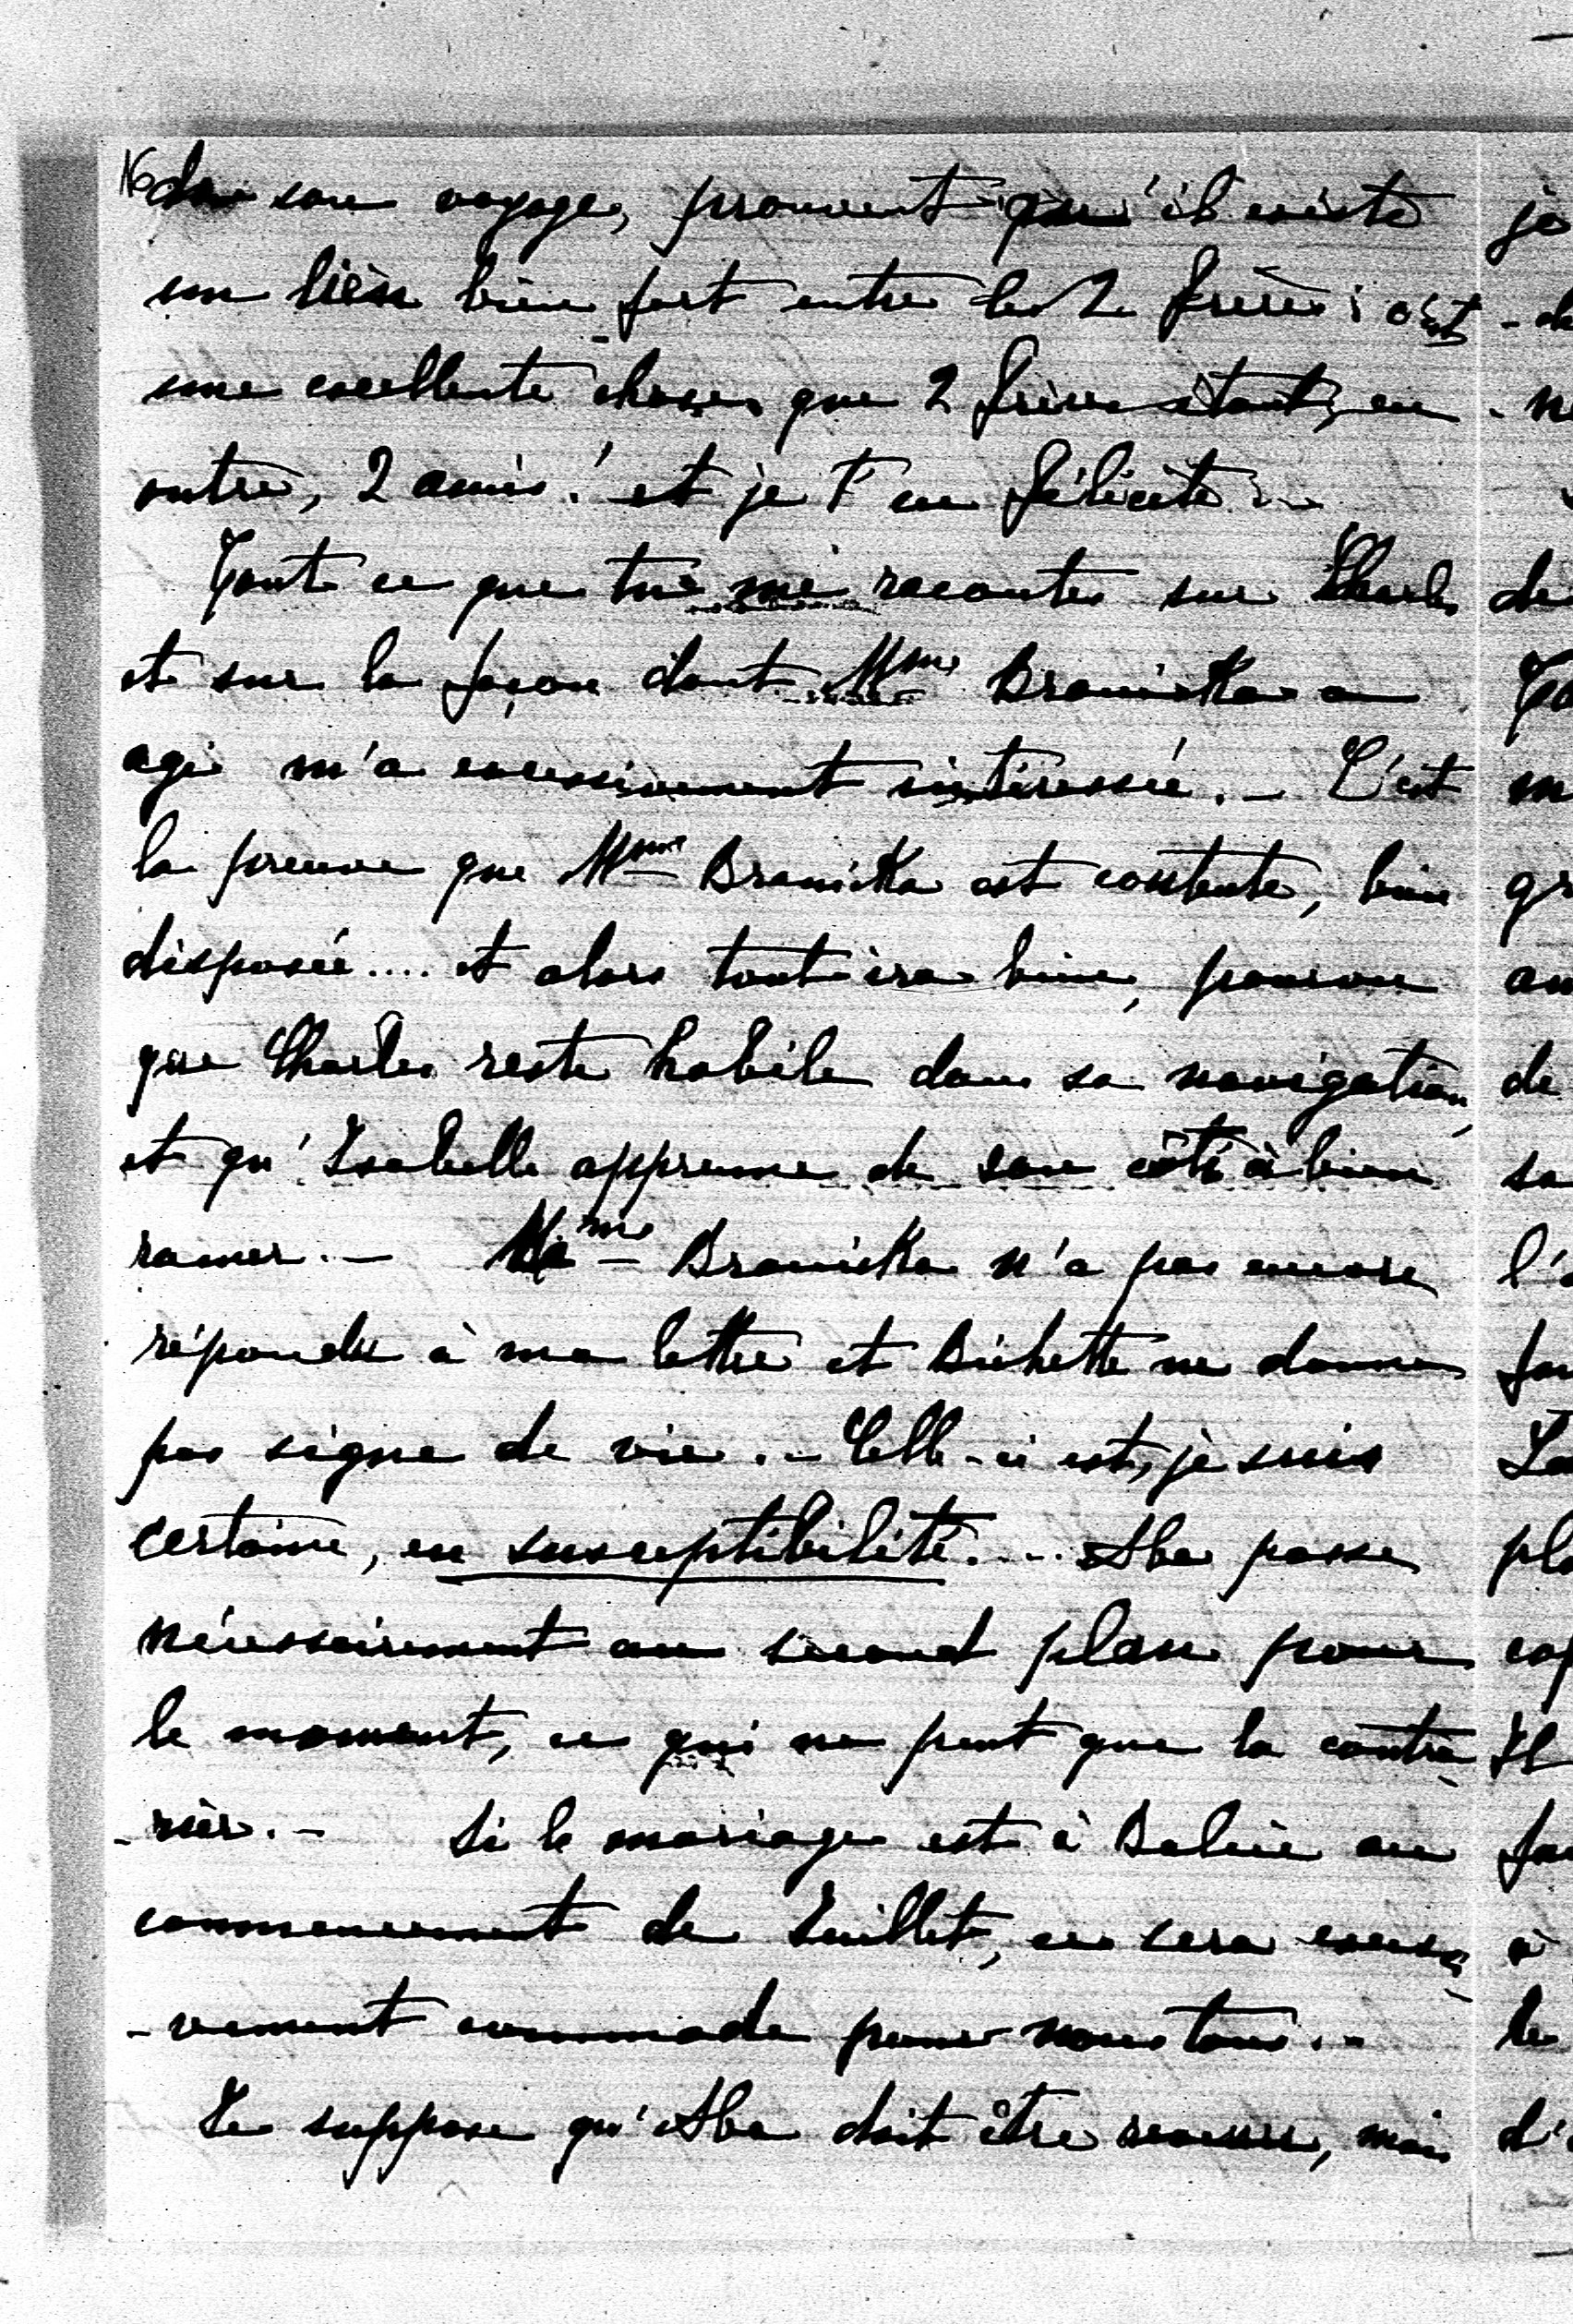 de son voyage, prouvent qu'il existe
un lien bien fort entre les 2 frères : c'est
une excellente chose, que 2 frères étant, en
outre, 2 amis ! et je t'en félicite.
Tout ce que tu me racontes sur Charles
et sur la façon dont Mme Branicka a
agi m'a excessivement intéressée. – C'est
la preuve que Mme Branicka est contente, bien
disposée.... et alors tout ira bien, pourvu
que Charles reste habile dans sa navigation,
et qu'Isabelle apprenne de son côté à bien
ramer. – Mme Branicka n'a pas encore
répondu à ma lettre et Bichette ne donne
pas signe de vie. – Celle-ci est, je suis
certaine, en susceptibilité.... Aba passe
nécessairement au second plan pour
le moment, ce qui ne peut que la contra-
-rier. – Si le mariage est à Balice au
commencement de Juillet, ce sera excessi-
-vement commode pour nous tous. –
Je suppose qu'Aba doit être revenue, mais
jo
- de
- ne
de
m
gr
au
de
sa
l'
pl
Il
à
le
d'